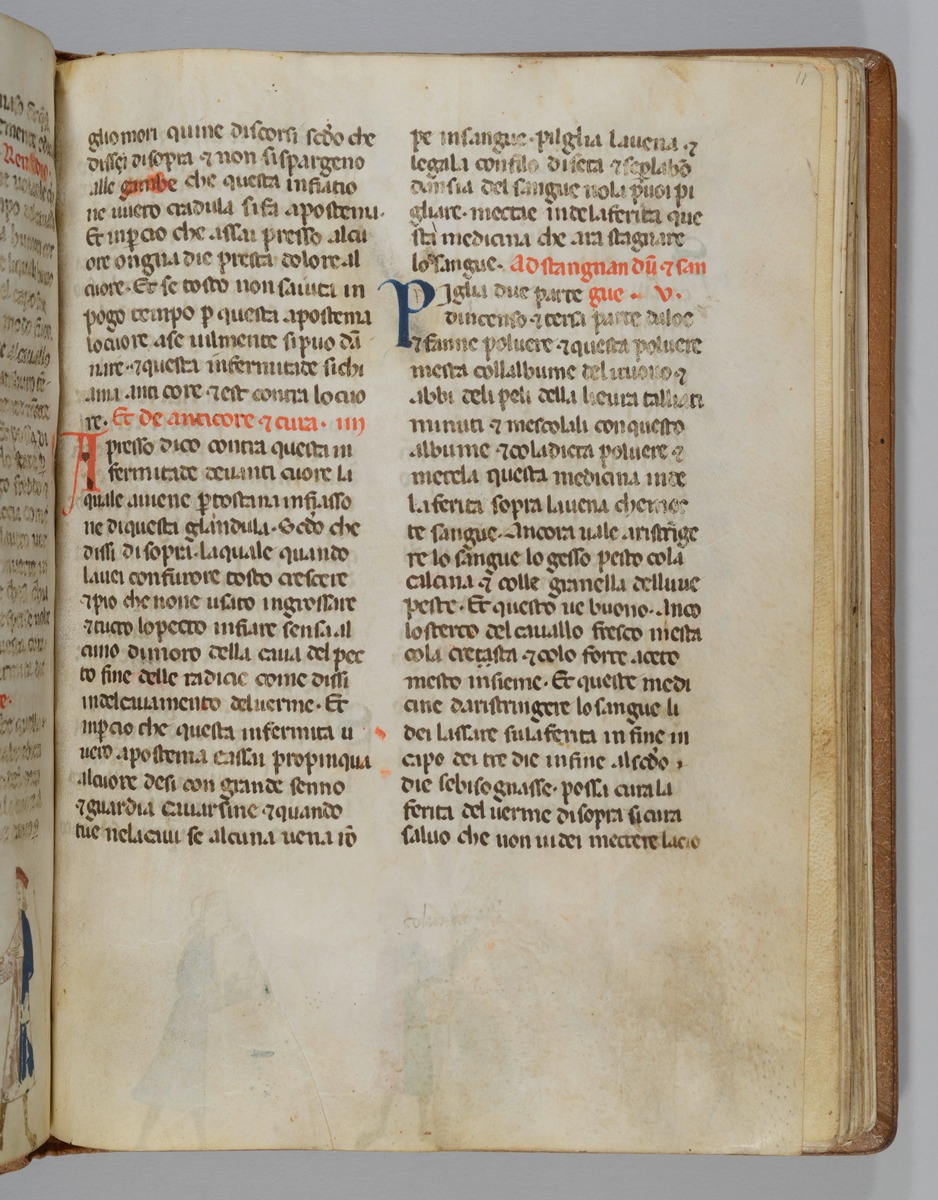 11
gliomori quine discorsi scđo che
disseci disopra ⁊ non sispargeno
alle gambe che questa infiatio
ne uuero cradula sifa apostema.
Et inꝑcio che assai presso alcu
ore ongna die presta dolore al
cuore. Et se tosto non saiuta in
pogo tempo ꝑ questa apostema
locuore ase uilmente sipuo dā
nare. ⁊questa infermitate sichi
ama anti core ⁊est contra locuo
re. Et de anticore ⁊cura. iiij
Apresso dico contra questa in
fermitate deuanti cuore la
quale auiene ꝑtostana infiasso
ne diquesta glandula. Scđo che
dissi disopra. laquale quando
lauei confurore tosto crescere
⁊pio che none usato ingrossare
⁊tucto lopecto infiare sensa al
cuno dimoro della caua del pec
to fine delle radicie come dissi
indelcauamento deluerme. Et
inꝑcio che questa infermita u
uero apostema Cassai propinqua
alcuore desi con grande senno
⁊guardia Cauarsine ⁊quando
tue nelacaui se alcuna uena rō
pe insangue. pilglia lauena ⁊
legala confilo diseta ⁊seplabō
dansia del sangue nola puoi pi
gliare. mectae indelaferita que
sta medicina che ara stagnare
losangue. Ad stangnandū ⁊ san
Piglia due parte gue. v.
duincenso ⁊tersa parte daloe
⁊fanne poluere ⁊questa poluere
mesta collalbume deluuouo ⁊
abbi deli peli della lieura talliati
minuti ⁊ mescolali conquesto
albume ⁊coladicta poluere ⁊
metela questa medicina inde
laferita sopra lauena chemec
te sangue. Ancora uale aristrīge
re lo sangue lo gesso pesto cola
calcina ⁊ colle granella delluue
peste. Et questo ue buono. Anco
losterco del cauallo fresco mesta
cola cretasta ⁊colo forte aceto
mesto insieme. Et queste medi
cine daristringere lo sangue li
dei lassare sulaferita in fine in
capo dei tre die infine alscđo
die sebisognasse. possa curala
ferita del uerme disopra sicura
saluo che non uidei mectere lacio